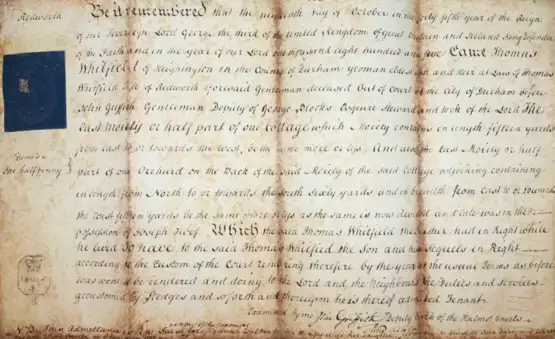 Redworth
Be it remembered that the nineteenth day of October in the forty fifth year of the Reign
of our Sovereign Lord George the third of the United Kingdom of Great Britain and Ireland King Defender
of the Faith and in the year of our Lord one thousand eight hundred and five Came Thomas
Whitfield of Heighington in the County of Durham yeoman eldest son and heir at Law of Thomas
Whitfield late of Redworth aforesaid Gentleman deceased Out of Court at the City of Durham before
John Griffith Gentleman Deputy of George Brooks Esquire Steward and took of the Lord The
East moiety or half part of one Cottage which Moiety contains in length fifteen yards
from East to or towards the West, be the same more or less And also the East Moiety or half
part of one Orchard on the Back of the said Moiety of the said Cottage adjoining containing
in length from North to or towards the South Sixty yards and in breadth from East to or towards
the West fifteen yards be the same more or less as the same is now divided and late was in the
possession of Joseph Which the said Thomas Whitfield the Father had in Right while
he lived To have to the said Thomas Whitfield the Son and his Sequels in Right
according to the Custom of the Court rendering therefore by the year the usual Ferms as before
was wont to be rendered and doing to the Lord and the Neighbours The Duties and Services
accustomed by Pledges and so forth and thereupon he is thereof admitted Tenant
Examined by me Jno Griffith Deputy Clerk of the Halmot Courts
one halfpenny
N.B. Admittance